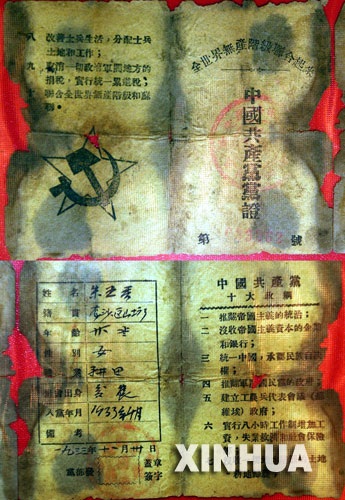 八 改善士兵生活，分配士兵
土地和工作；
九 取消一切政府軍閥地方的
捐稅，實行統一累進稅；
聯合全世界無產階級和蘇
聯。
全世界無產階級聯合起來
中國共產黨黨證
第 號
姓名 朱
籍貫
年齡
性別 女
職業 耕田
出身
入黨年月 1933年 月
備考
一九三三年十二月卅日
黨部發 蓋章
簽字
中國共產黨
十大政綱
推翻帝國主義的統治；
二 沒收帝國主義資本的企業
和銀行；
三 統一中國，承認民族自決
權；
四 推翻軍閥國民黨的政府；
五 建立工農兵代表會議（蘇
維埃）政府；
六 實行八小時工作制增加工
資，失業救濟和社會保險
土地
XINHUA